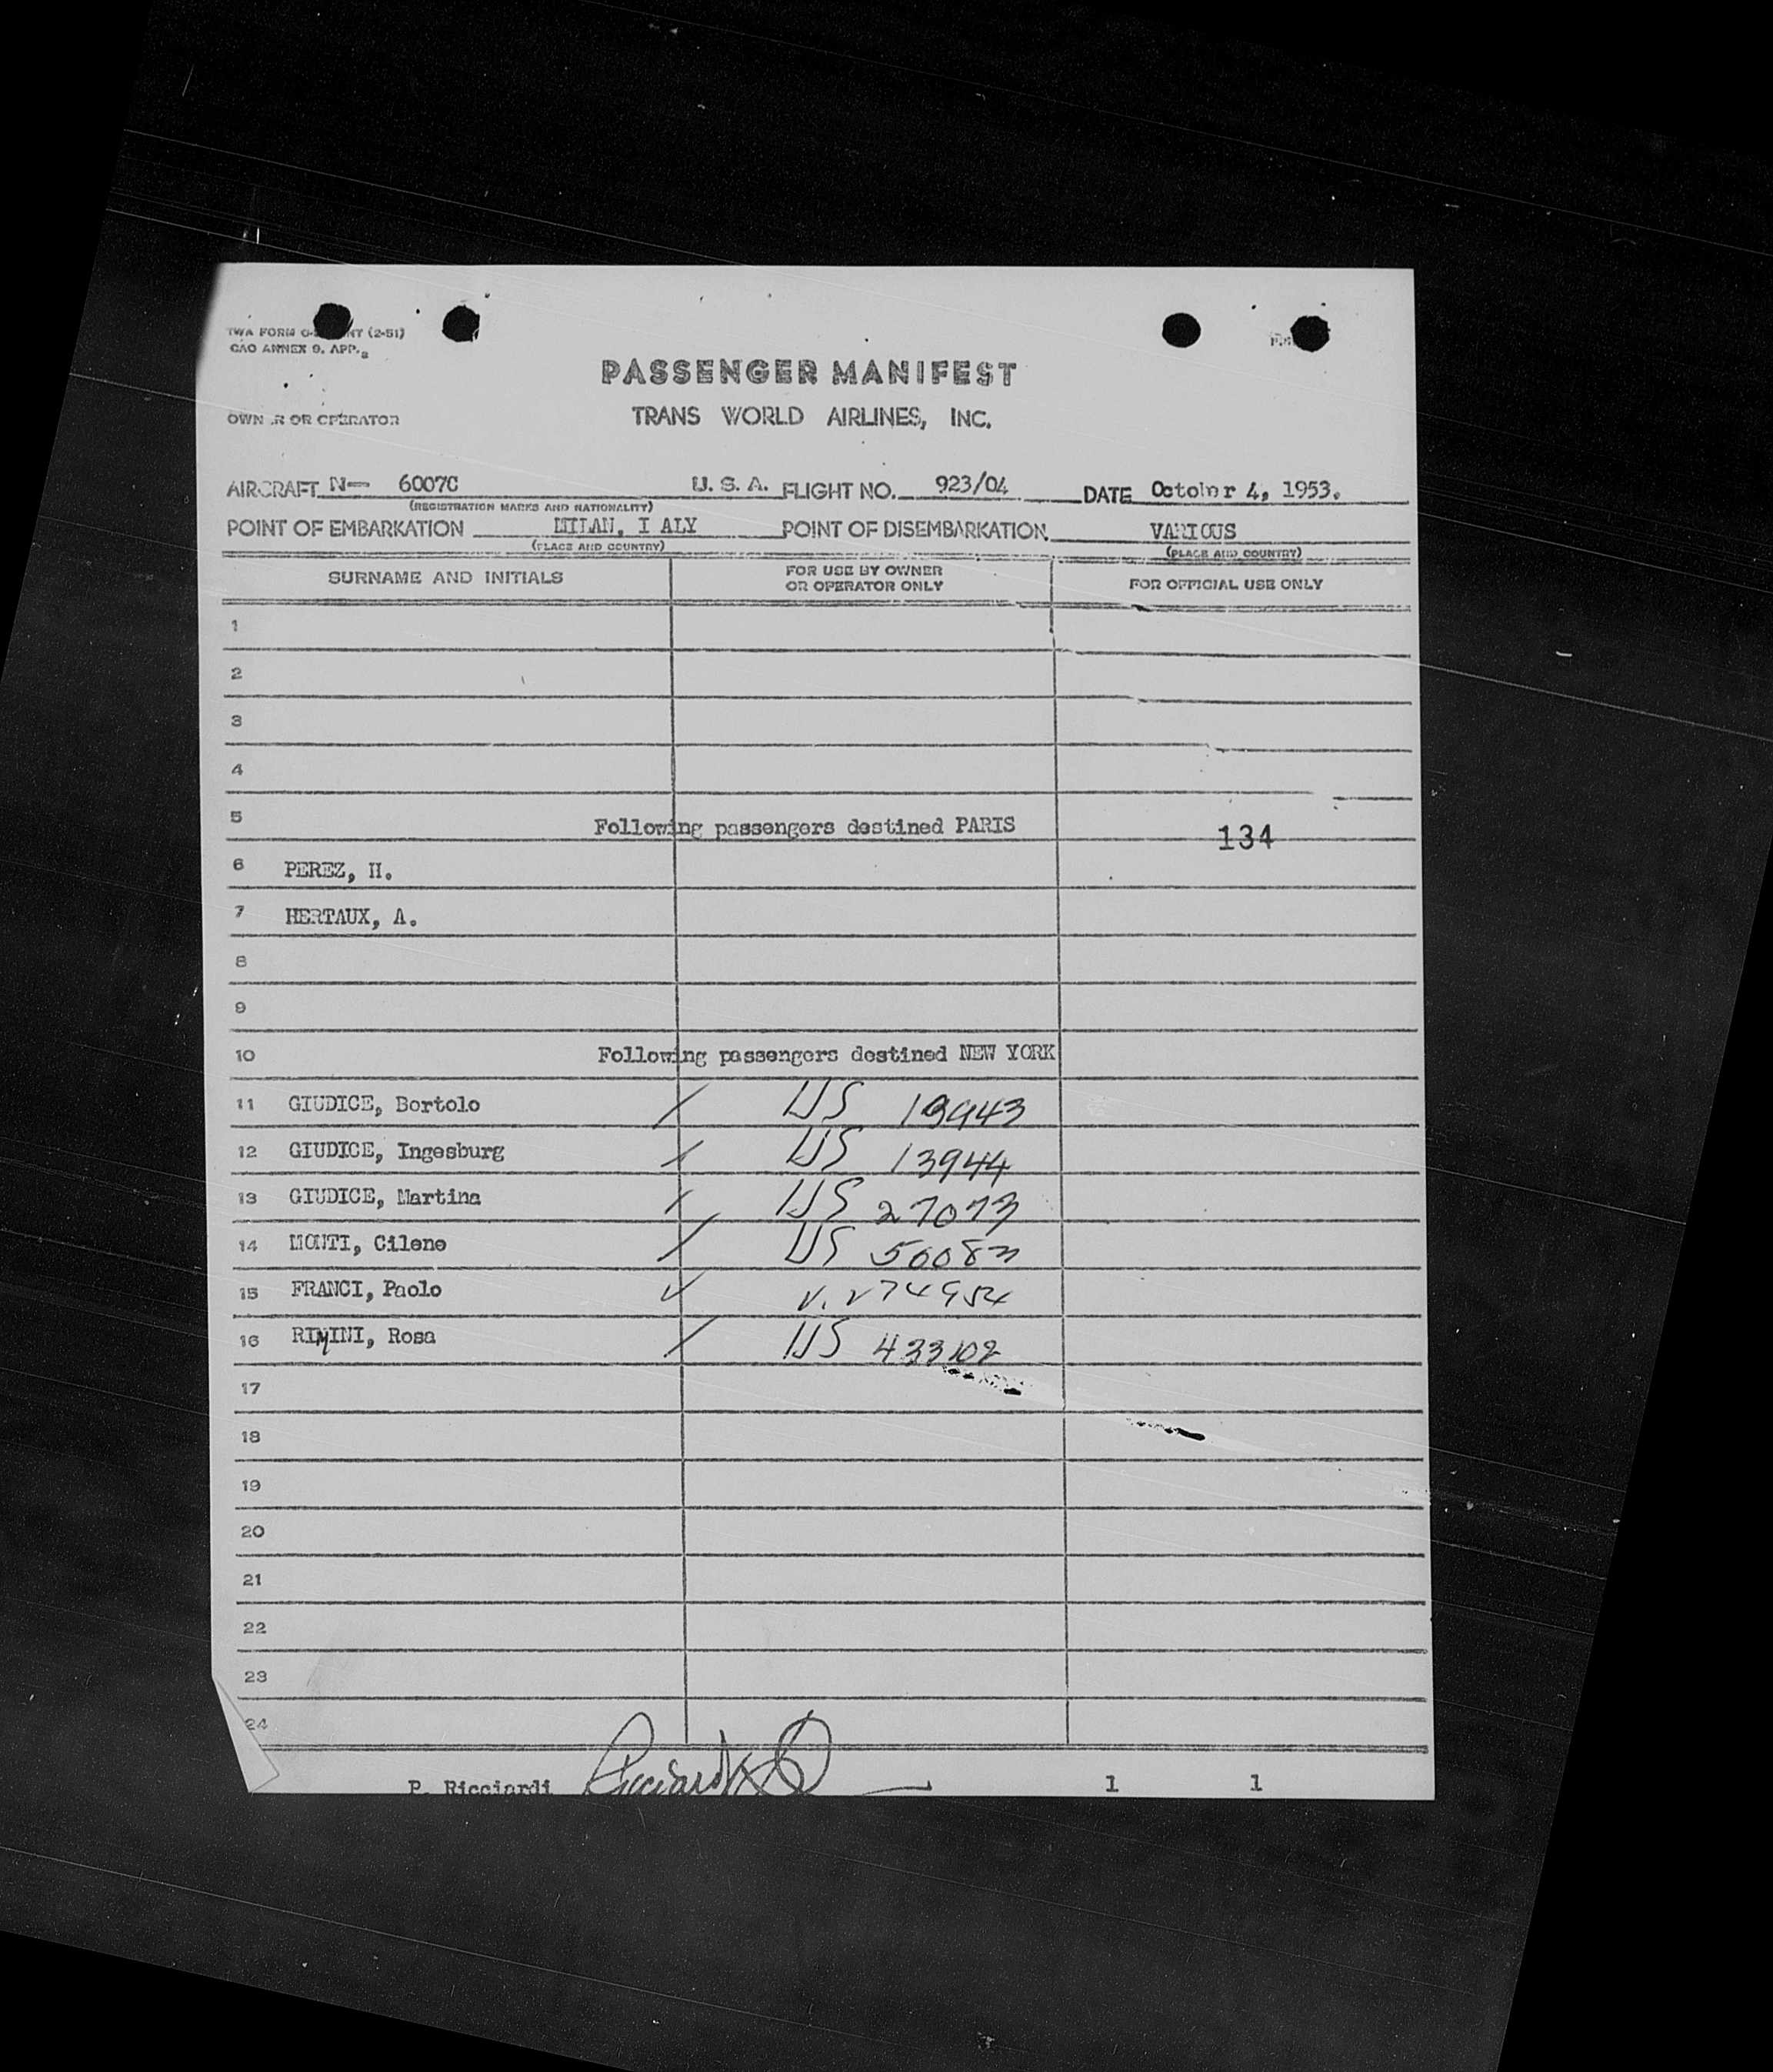 TWA FORM O- NT (2-51)
CAO ANNEX 9. APP. 2
PASSENGER MANIFEST
OWN R OR OPERATOR
TRANS WORLD AIRLINES, INC.
AIRCRAFT N- 6007C U. S. A. FLIGHT NO. 923/04 DATE October 4, 1953.
(REGISTRATION MARKS AND NATIONALITY)
POINT OF EMBARKATION MILAN, I ALY POINT OF DISEMBARKATION VARIOUS
(PLACE AND COUNTRY) (PLACE AND COUNTRY)
SURNAME AND INITIALS FOR USE BY OWNER OR OPERATOR ONLY FOR OFFICIAL USE ONLY
1
2
3
4
5 Following passengers destined PARIS 134
6 PEREZ, H.
7 HERTAUX, A.
8
9
10 Following passengers destined NEW YORK
11 GIUDICE, Bortolo / US 13943
12 GIUDICE, Ingesburg / US 13944
13 GIUDICE, Martina / US 27073
14 MONTI, Cilene / US
15 FRANCI, Paolo ✓ V.
16 RIMINI, Rosa / US 433102
17
18
19
20
21
22
23
24
P. Ricciardi Ricciardi 1 1